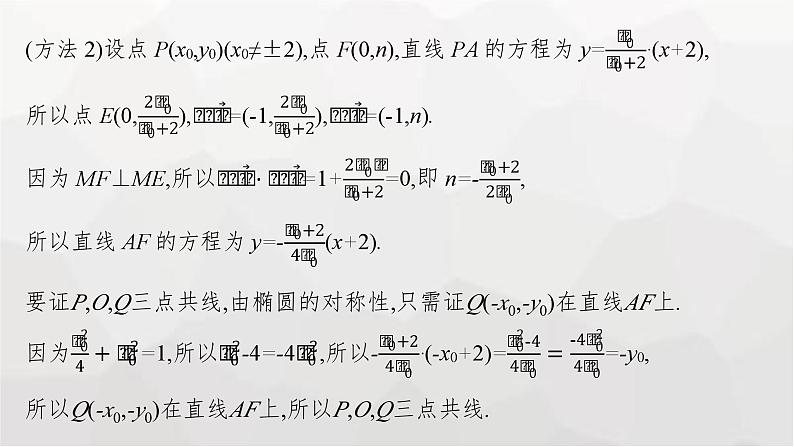 (方法 2)设点 P(x₀,y₀)(x₀≠±2),点 F(0,n),直线 PA 的方程为 y=₀/₀+2·(x+2),
所以点 E(0,2₀/₀+2),=(-1,2₀/₀+2),=(-1,n).
因为 MF⊥ME,所以·=1+2₀/₀+2=0,即 n=-₀+2/2₀,
所以直线 AF 的方程为 y=-₀+2/4₀(x+2).
要证P,O,Q三点共线,由椭圆的对称性,只需证Q(-x₀,-y₀)在直线AF上.
因为₀²/4+₀²=1,所以₀²-4=-4₀²,所以-₀+2/4₀·(-x₀+2)=₀²-4/4₀=-4₀²/4₀=-y₀,
所以Q(-x₀,-y₀)在直线AF上,所以P,O,Q三点共线.